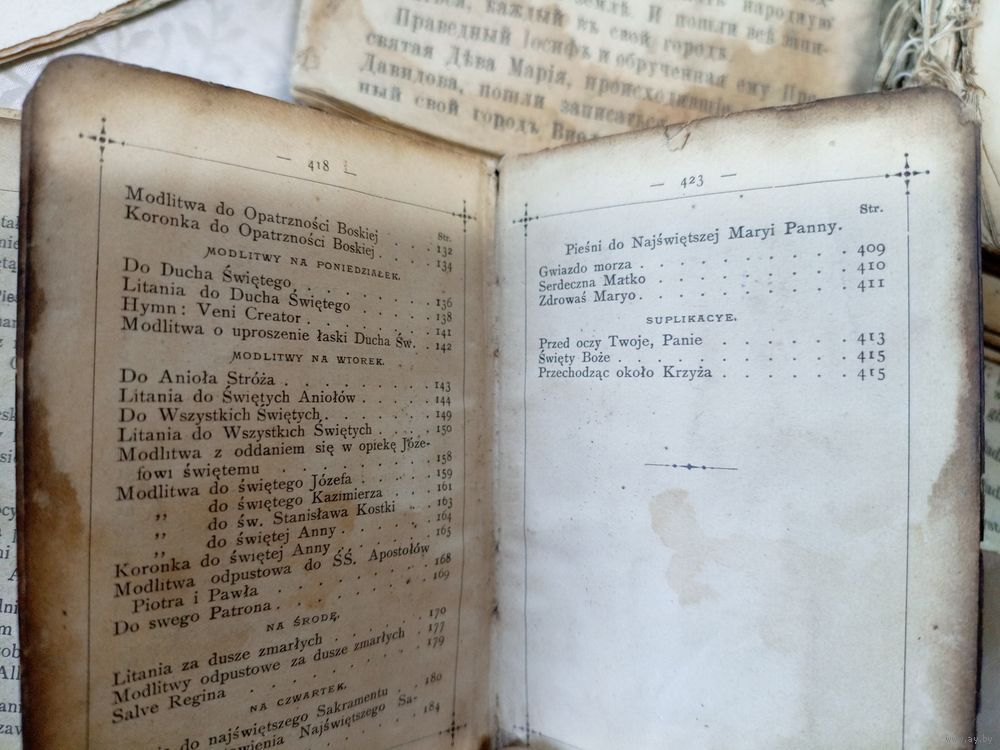 землѣ. И пошли всѣ запи-
каждый къ свой городъ.
Праведный Іосифъ и обрученная ему Пре-
святая Дѣва Марія, происходившіе
Давидова, пошли записаться
ный свой городъ
— 418 —
Str.
Modlitwa do Opatrzności Boskiej . . . 132
Koronka do Opatrzności Boskiej . . . 134
MODLITWY NA PONIEDZIAŁEK.
Do Ducha Świętego . . . . . . . 136
Litania do Ducha Świętego . . . . 138
Hymn: Veni Creator . . . . . . . 141
Modlitwa o uproszenie łaski Ducha Św. . 142
MODLITWY NA WTOREK.
Do Anioła Stróża . . . . . . . . 143
Litania do Świętych Aniołów . . . . . 144
Do Wszystkich Świętych . . . . . . 149
Litania do Wszystkich Świętych . . . . 150
Modlitwa z oddaniem się w opiekę Józe-
fowi świętemu . . . . . . . . 158
Modlitwa do świętego Józefa . . . . 159
„ do świętego Kazimierza . . . 161
„ do św. Stanisława Kostki . . 163
„ do świętej Anny . . . . . 164
Koronka do świętej Anny . . . . . 165
Modlitwa odpustowa do ŚŚ. Apostołów
Piotra i Pawła . . . . . . . . 168
Do swego Patrona . . . . . . . . 169
NA ŚRODĘ.
Litania za dusze zmarłych . . . . . 170
Modlitwy odpustowe za dusze zmarłych . 177
Salve Regina . . . . . . . . . 179
NA CZWARTEK.
do najświętszego Sakramentu . . 180
Najświętszego Sa-
184
— 423 —
Str.
Pieśni do Najświętszej Maryi Panny.
Gwiazdo morza . . . . . . . . . 409
Serdeczna Matko . . . . . . . . 410
Zdrowaś Maryo . . . . . . . . . 411
SUPLIKACYE.
Przed oczy Twoje, Panie . . . . . 413
Święty Boże . . . . . . . . . . 415
Przechodząc około Krzyża . . . . . 415
www.ay.by